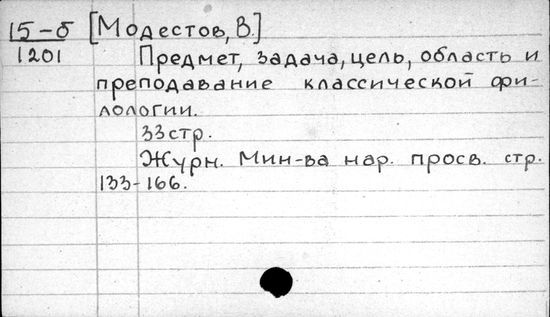 15-б [Модестов, В.]
1201 Предмет, задача, цель, область и
преподавание классической фи-
лологии.
33 стр.
Журн. Мин-ва нар. просв. стр.
133-166.